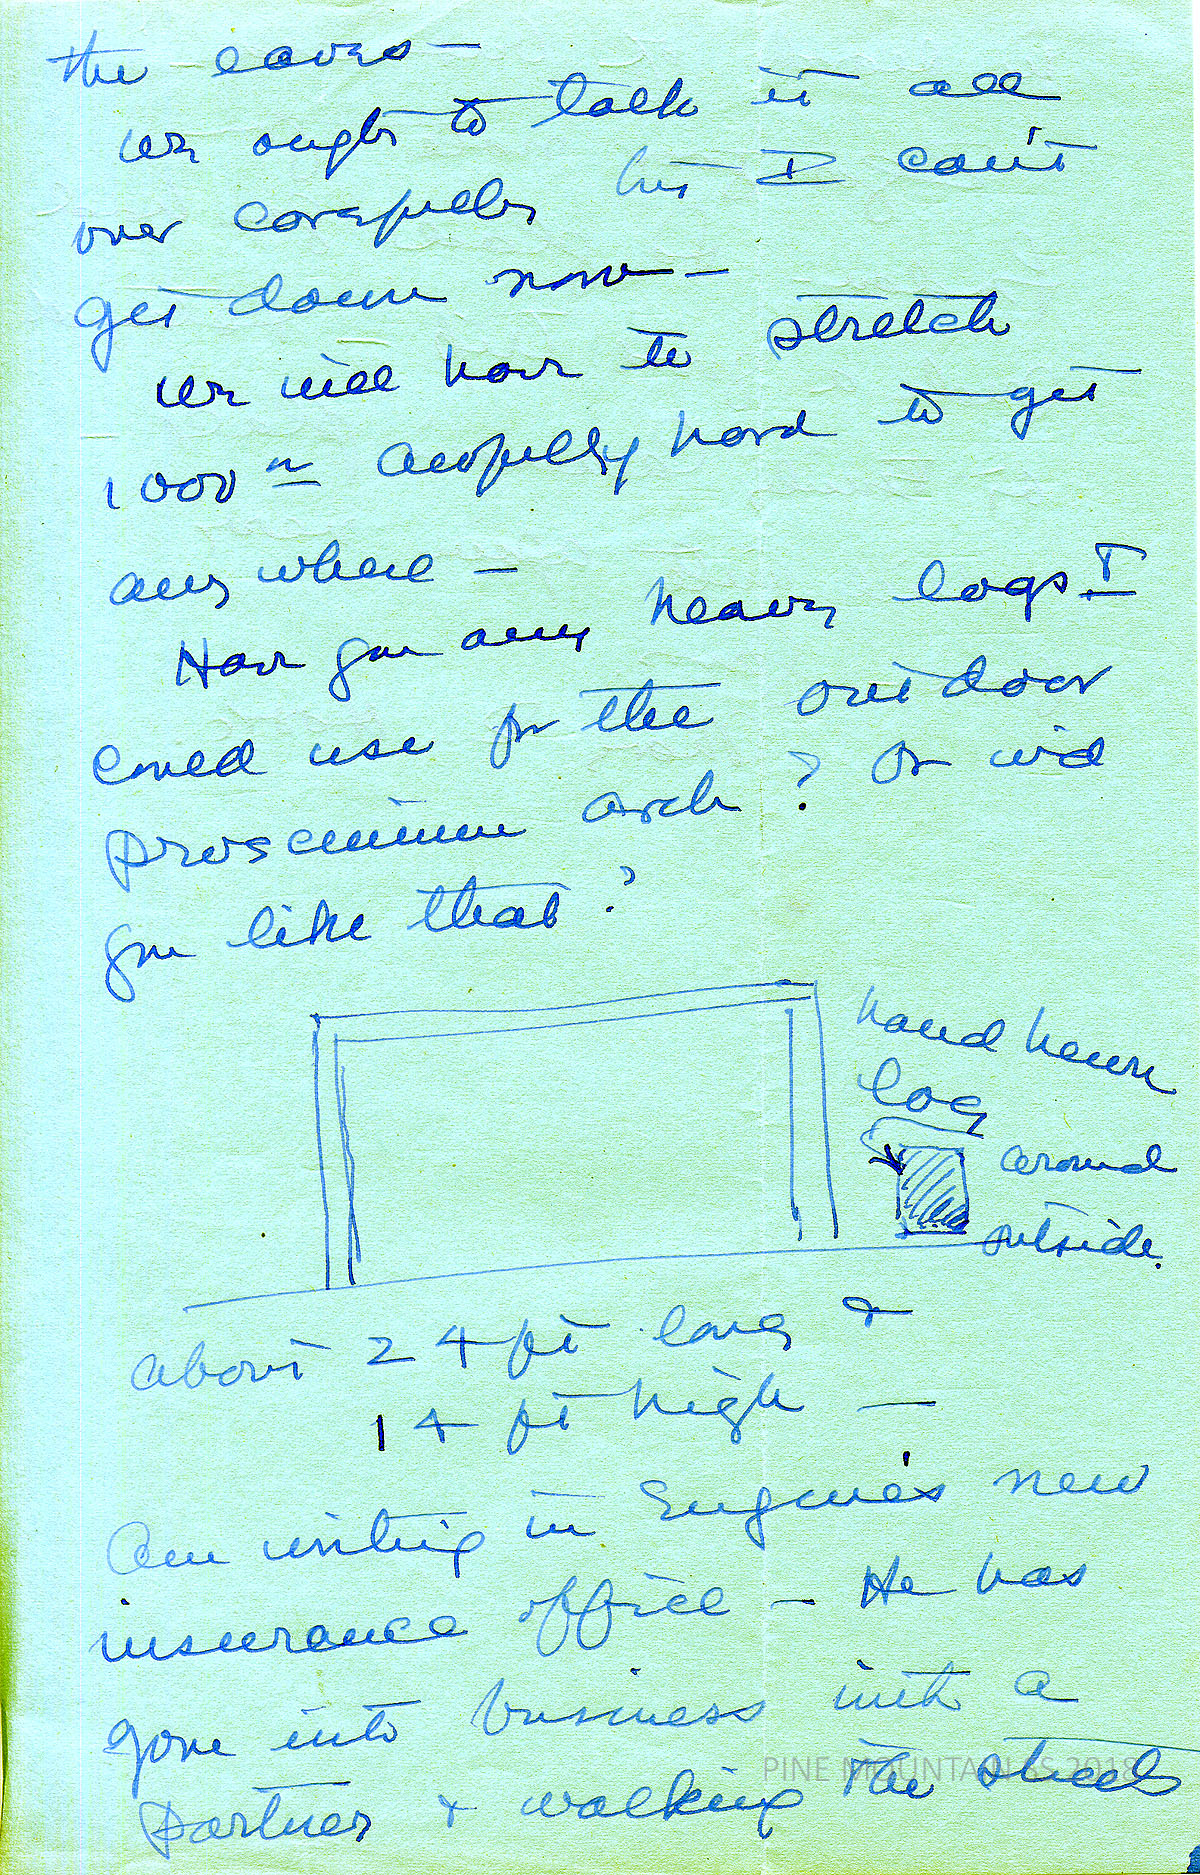 the eaves —
we ought to talk it all
over carefully but I can't
get down now —
we will have to stretch
1000 awfully hard to get
any where —
Have you any heavy logs I
could use for the outdoor
proscenium arch? Or w'd
you like that?
hand hewn
log
around
outside.
about 24 ft long &
14 ft high —
Am writing in Eugene's new
insurance office — He has
gone into business with a
partner & walking the streets
PINE MOUNTAIN SS 2018